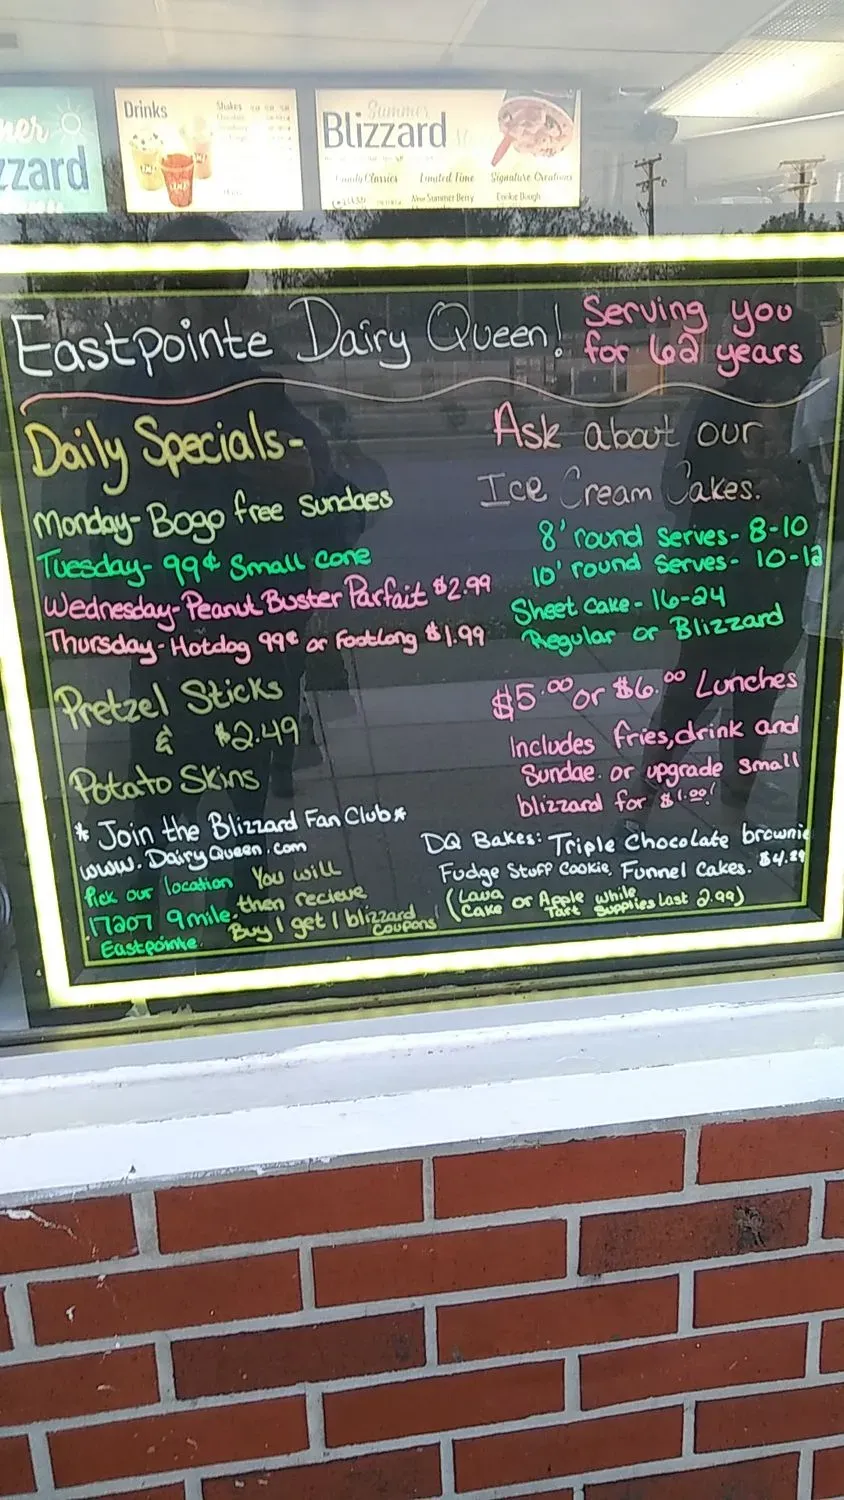 mer
zzard
Drinks
Shakes
Summer
Blizzard
Candy Classics
Limited Time
Signature Creations
New Summer Berry
Cookie Dough
Eastpointe Dairy Queen!
Serving you
for 62 years
Daily Specials-
Monday- Bogo free Sundaes
Tuesday- 99¢ Small Cone
Wednesday- Peanut Buster Parfait $2.99
Thursday- Hotdog 99¢ or FootLong $1.99
Pretzel Sticks
& $2.49
Potato Skins
* Join the Blizzard Fan Club *
www.DairyQueen.com
Pick our location
17207 9mile.
Eastpointe.
You will
then recieve
Buy 1 get 1 blizzard
Coupons!
Ask about our
Ice Cream Cakes.
8' round Serves- 8-10
10' round Serves- 10-12
Sheet cake- 16-24
Regular or Blizzard
$5.00 or $6.00 Lunches
Includes fries, drink and
Sundae. or upgrade small
blizzard for $1.00!
DQ Bakes: Triple Chocolate brownie
Fudge Stuff Cookie, Funnel Cakes. $4.29
(Lava Cake or Apple Tart while supplies last 2.99)